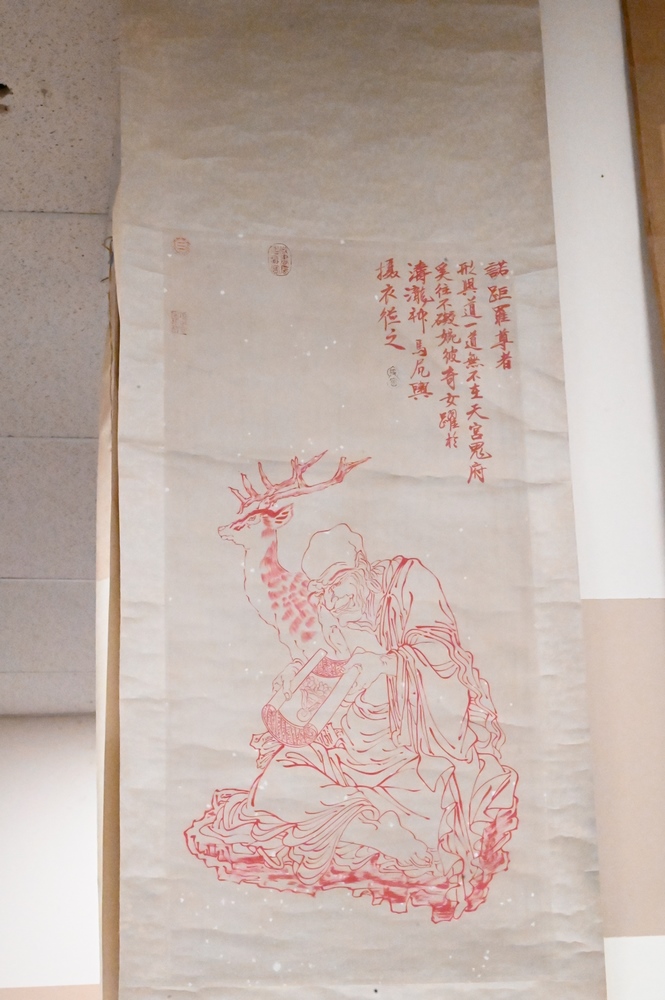 諾距羅尊者
形與道一道無不在天宮鬼府
奚往不礙婉彼奇女躍於
濤瀧神馬尻輿
攝衣從之